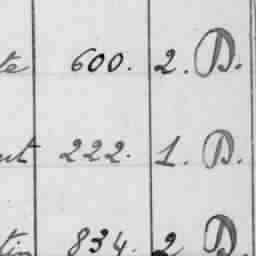 te 600. 2. D.
ut 222. 1. D.
tin 834. 2 D.